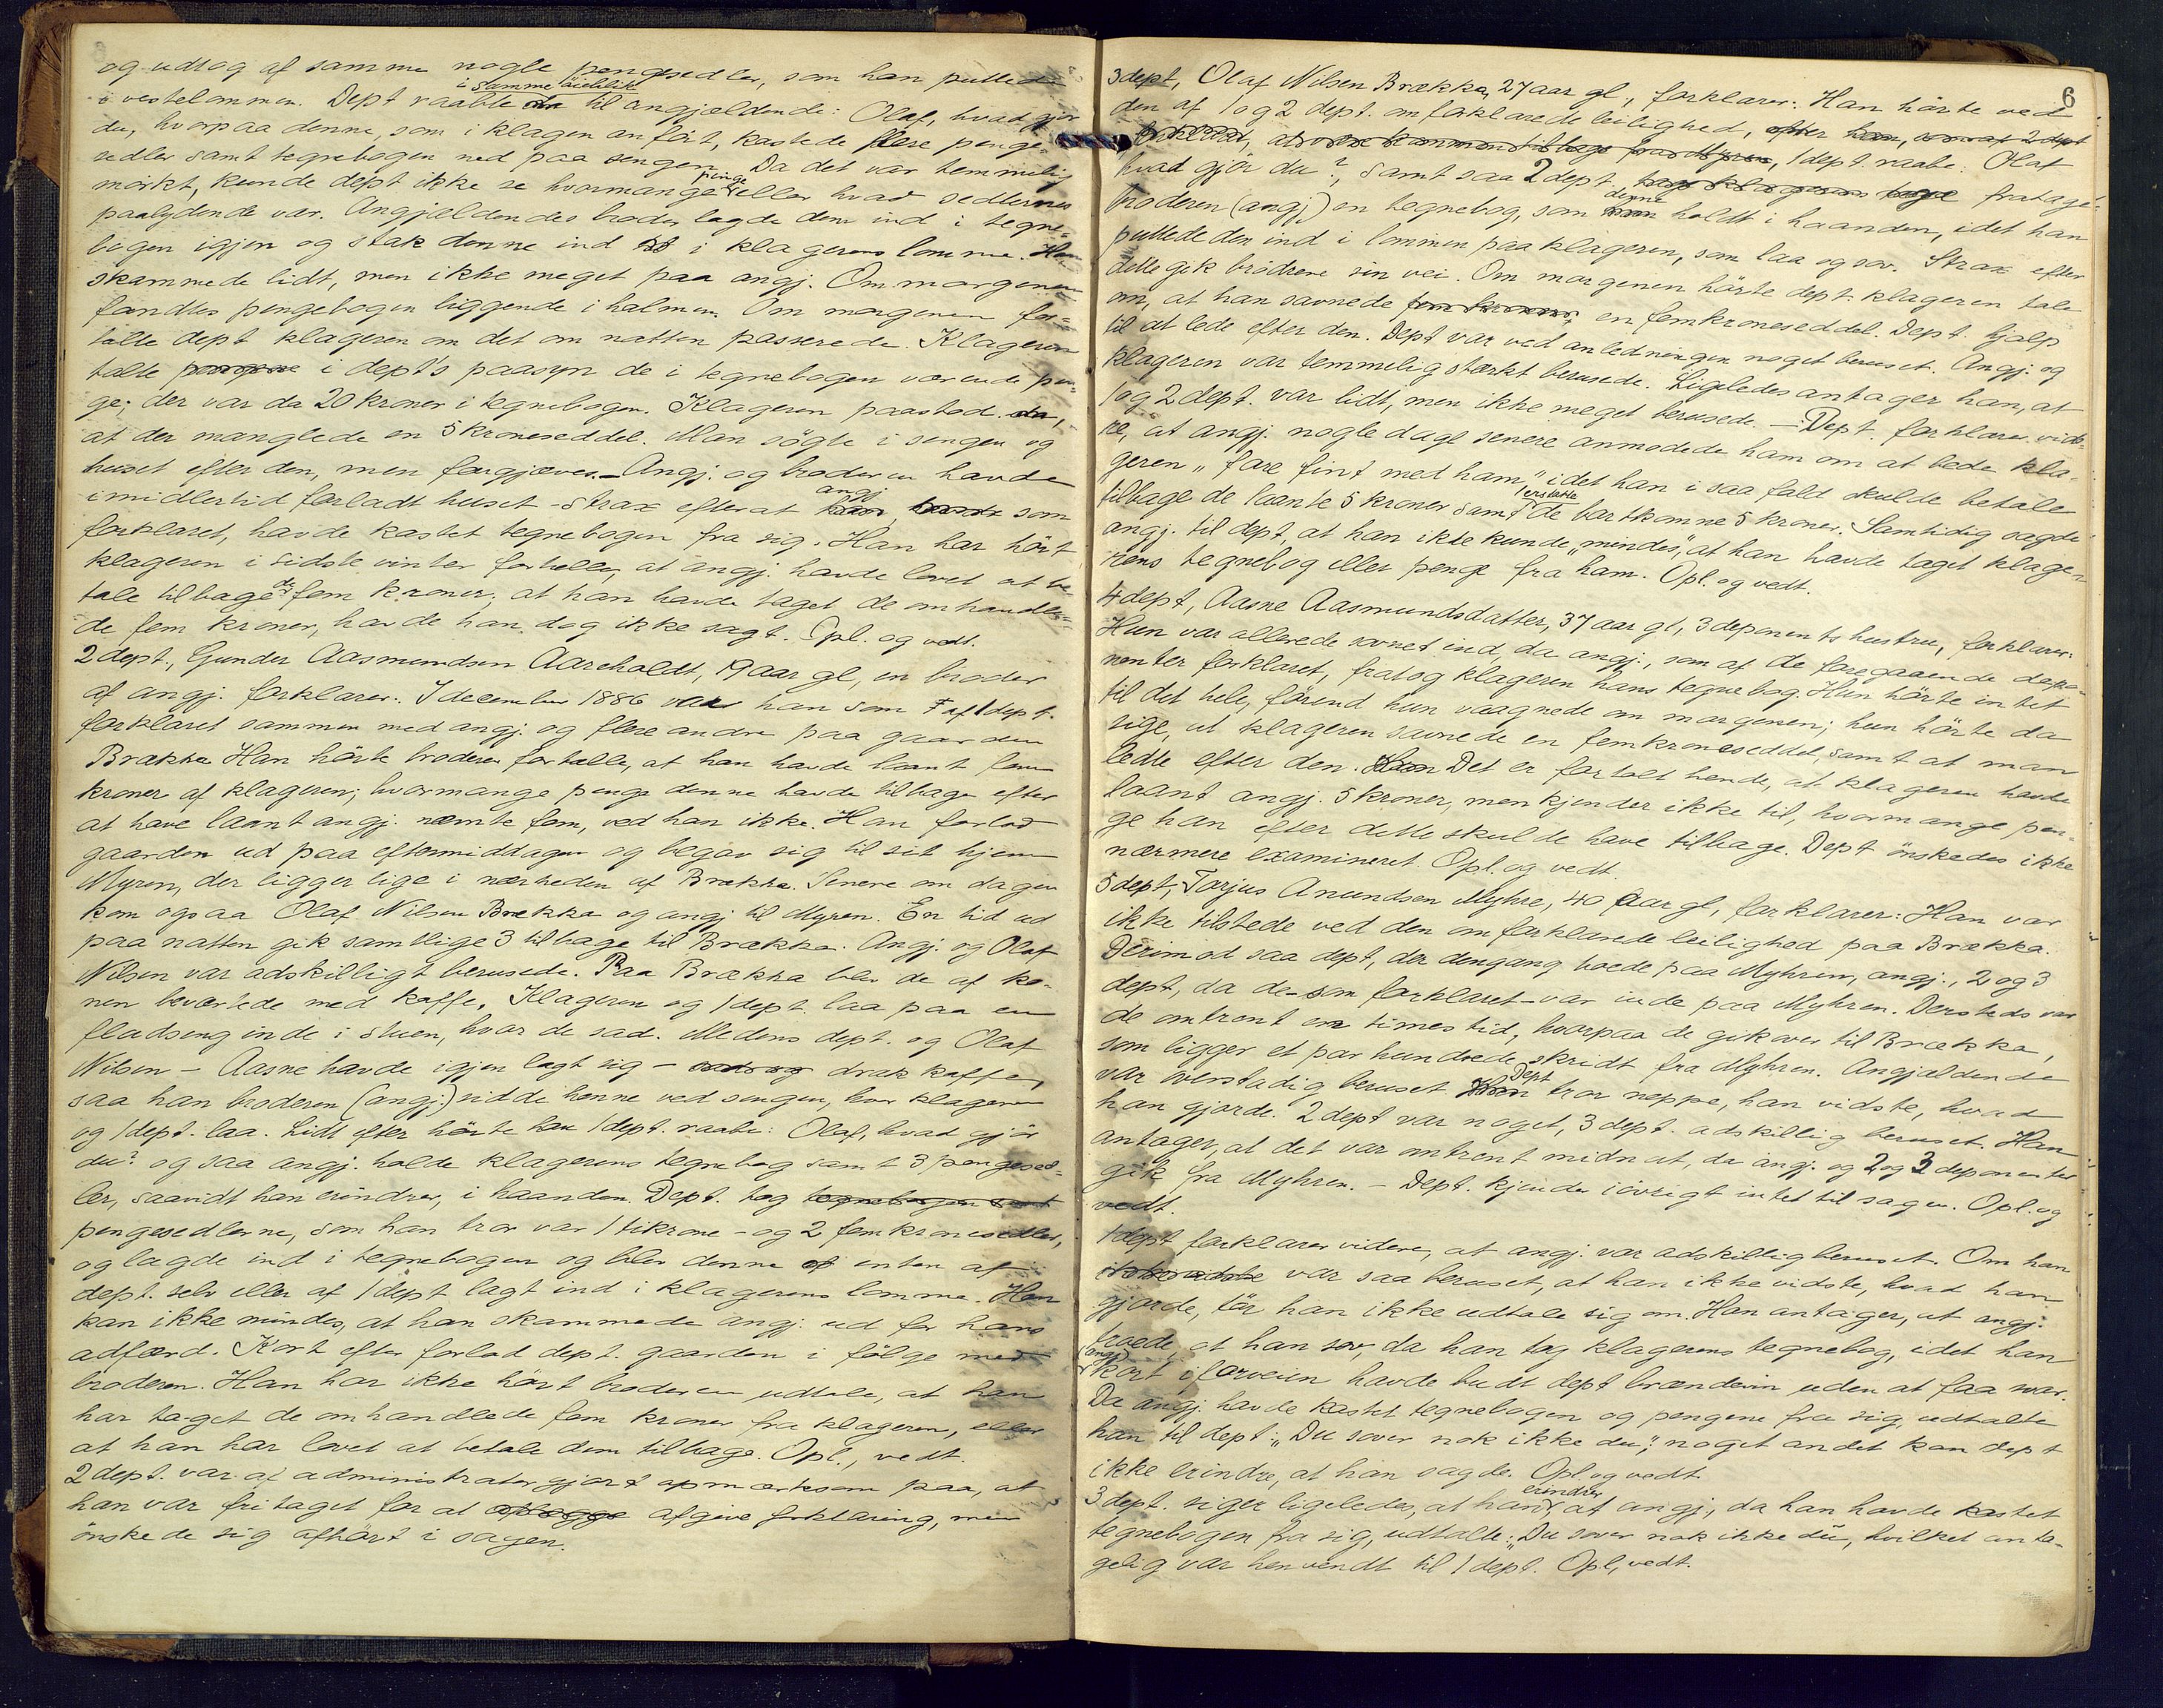 og udtog af samme nogle pengesedler, som han puttede
i samme öieblik
i vestelommen. Dept raabte til angjældende: Olaf, hvad gjör
du, hvorpaa denne, som i klagen anfört, kastede flere penge-
sedler samt tegnebogen ned paa sengen. Da det var temmelig
mörkt, kunde dept ikke se hvormange penge eller hvad sedlernes
paalydende var. Angjældendes broder lagde dem ind i tegne-
bogen igjen og stak denne ind i klagerens lomme. Han
skammede lidt, men ikke meget paa angj. Om morgenen
fandtes pengebogen liggende i halmen. Om morgenen for-
talte dept klageren om det om natten passerede. Klageren
talte i dept's paasyn de i tegnebogen værende pen-
ge; der var da 20 kroner i tegnebogen. Klageren paastod da,
at der manglede en 5 kroneseddel. Man sögte i sengen og
huset efter den, men forgjæves. Angj. og broderen havde
imidlertid forladt huset - strax efter at angj. som
forklaret, havde kastet tegnebogen fra sig. Han har hört
klageren i sidste vinter fortælle, at angj. havde lovet at be-
tale tilbage de fem kroner; at han havde taget de omhandle-
de fem kroner, havde han dog ikke sagt. Opl. og vedt.
2 dept., Gunder Aasmundsen Aareholdt, 19 aar gl, en broder
af angj. forklarer: I december 1886 var han som af 1 dept.
forklaret sammen med angj. og flere andre paa gaarden
Brække. Han hörte broderen fortælle, at han havde laant fem
kroner af klageren; hvormange penge denne havde tilbage efter
at have laant angj. nævnte fem, ved han ikke. Han forlod
gaarden ud paa eftermiddagen og begav sig til sit hjem
Myren, der ligger lige i nærheden af Brække. Senere om dagen
kom ogsaa Olaf Nilsen Brekka og angj. til Myren. En tid ud
paa natten gik samtlige 3 tilbage til Brækka. Angj. og Olaf
Nilsen var adskilligt berusede. Paa Brækka blev de af ko-
nen beværtede med kaffe. Klageren og 1 dept. laa paa en
fladseng inde i stuen, hvor de sad. Medens dept. og Olaf
Nilsen - Aasne havde igjen lagt sig - drak kaffe,
saa han broderen (angj.) sidde henne ved sengen, hvor klageren
og 1 dept. laa. Lidt efter hörte han 1 dept. raabe: Olaf, hvad gjör
du? og saa angj. holde klagerens tegnebog samt 3 pengesed-
ler, saavidt han erindrer, i haanden. Dept. tog tegnebogen samt
pengesedlerne, som han tror var 1 tikrone- og 2 femkronesedler,
og lagde ind i tegnebogen og blev denne enten af
dept. selv eller af 1 dept lagt ind i klagerens lomme. Han
kan ikke mindes, at han skammede angj. ud for hans
adfærd. Kort efter forlod dept. gaarden i fölge med
broderen. Han har ikke hört broderen udtale, at han
har taget de omhandlede fem kroner fra klageren, eller
at han har lovet at betale dem tilbage. Opl., vedt.
2 dept. var af administrator gjort opmærksom paa, at
han var fritaget for at afgive forklaring, men
önskede sig afhört i sagen.
6
3 dept, Olaf Nilsen Brækka, 27 aar gl., forklarer: Han hörte ved
den af 1 og 2 dept. omforklarede leilighed, efter han, som af 2 dept
forklaret, at være kommen tilbage fra Myren, 1 dept. raabe: Olaf
hvad gjör du?, samt saa 2 dept. tage klagerens fratage
broderen (angj.) en tegnebog, som denne holdt i haanden, idet han
puttede den ind i lommen paa klageren, som laa og sov. Strax efter
dette gik brödrene sin vei. Om morgenen hörte dept. klageren tale
om, at han savnede fem kroner, en femkroneseddel. Dept. hjalp
til at lede efter den. Dept var ved anledningen noget beruset. Angj. og
klageren var temmelig stærkt berusede. Ligeledes antager han, at
1 og 2 dept. var lidt, men ikke meget berusede. - Dept. forklarer vide-
re, at angj. nogle dage senere anmodede ham om at bede kla-
geren "fare fint med ham," idet han i saa fald skulde betale
tilbage de laante 5 kroner samt erstatte de bortkomne 5 kroner. Samtidig sagde
angj. til dept, at han ikke kunde "mindes," at han havde taget klage-
rens tegnebog eller penge fra ham. Opl. og vedt.
4 dept, Aasne Aasmundsdatter, 37 aar gl, 3 deponents hustru, forklarer:
Hun var allerede sovnet ind, da angj., som af de foregaaende depo-
nenter forklaret, fratog klageren hans tegnebog. Hun hörte intet
til det hele, förend hun vaagnede om morgenen; hun hörte da
sige, at klageren savnede en femkroneseddel, samt at man
ledte efter den. Det er fortalt hende, at klageren havde
laant angj. 5 kroner, men kjender ikke til, hvormange pen-
ge han efter dette skulde have tilbage. Dept önskedes ikke
nærmere examineret. Opl. og vedt.
5 dept, Torjus Anundsen Myhre, 40 aar gl, forklarer: Han var
ikke tilstede ved den omforklarede leilighed paa Brækka.
Derimod saa dept, der dengang boede paa Myhren, angj., 2 og 3
dept, da de - som forklaret - var inde paa Myhren. Dersteds var
de omtrent en times tid, hvorpaa de gik over til Brækka,
som ligger et par hundrede skridt fra Myhren. Angjældende
var overstadig beruset. Dept tror neppe, han vidste, hvad
han gjorde. 2 dept var noget, 3 dept. adskillig beruset. Han
antager, at det var omtrent midnat, da angj. og 2 og 3 deponenter
gik fra Myhren. - Dept. kjender iövrigt intet til sagen. Opl. og
vedt.
1 dept forklarer videre, at angj. var adskillig beruset. Om han
ikke vidste var saa beruset, at han ikke vidste, hvad han
gjorde, tör han ikke udtale sig om. Han antager, at angj.
troede, at han sov, da han tog klagerens tegnebog, idet han
(angj.) kort iforveien havde budt dept brændevin uden at faa svar.
Da angj. havde kastet tegnebogen og pengene fra sig, udtalte
han til dept: "Du sover nok ikke du"; noget andet kan dept
ikke erindre, at han sagde. Opl. og vedt.
3 dept. siger ligeledes, at han erindrer, at angj., da han havde kastet
tegnebogen fra sig, udtalte: "Du sover nok ikke du, hvilket anta-
gelig var henvendt til 1 dept. Opl, vedt.